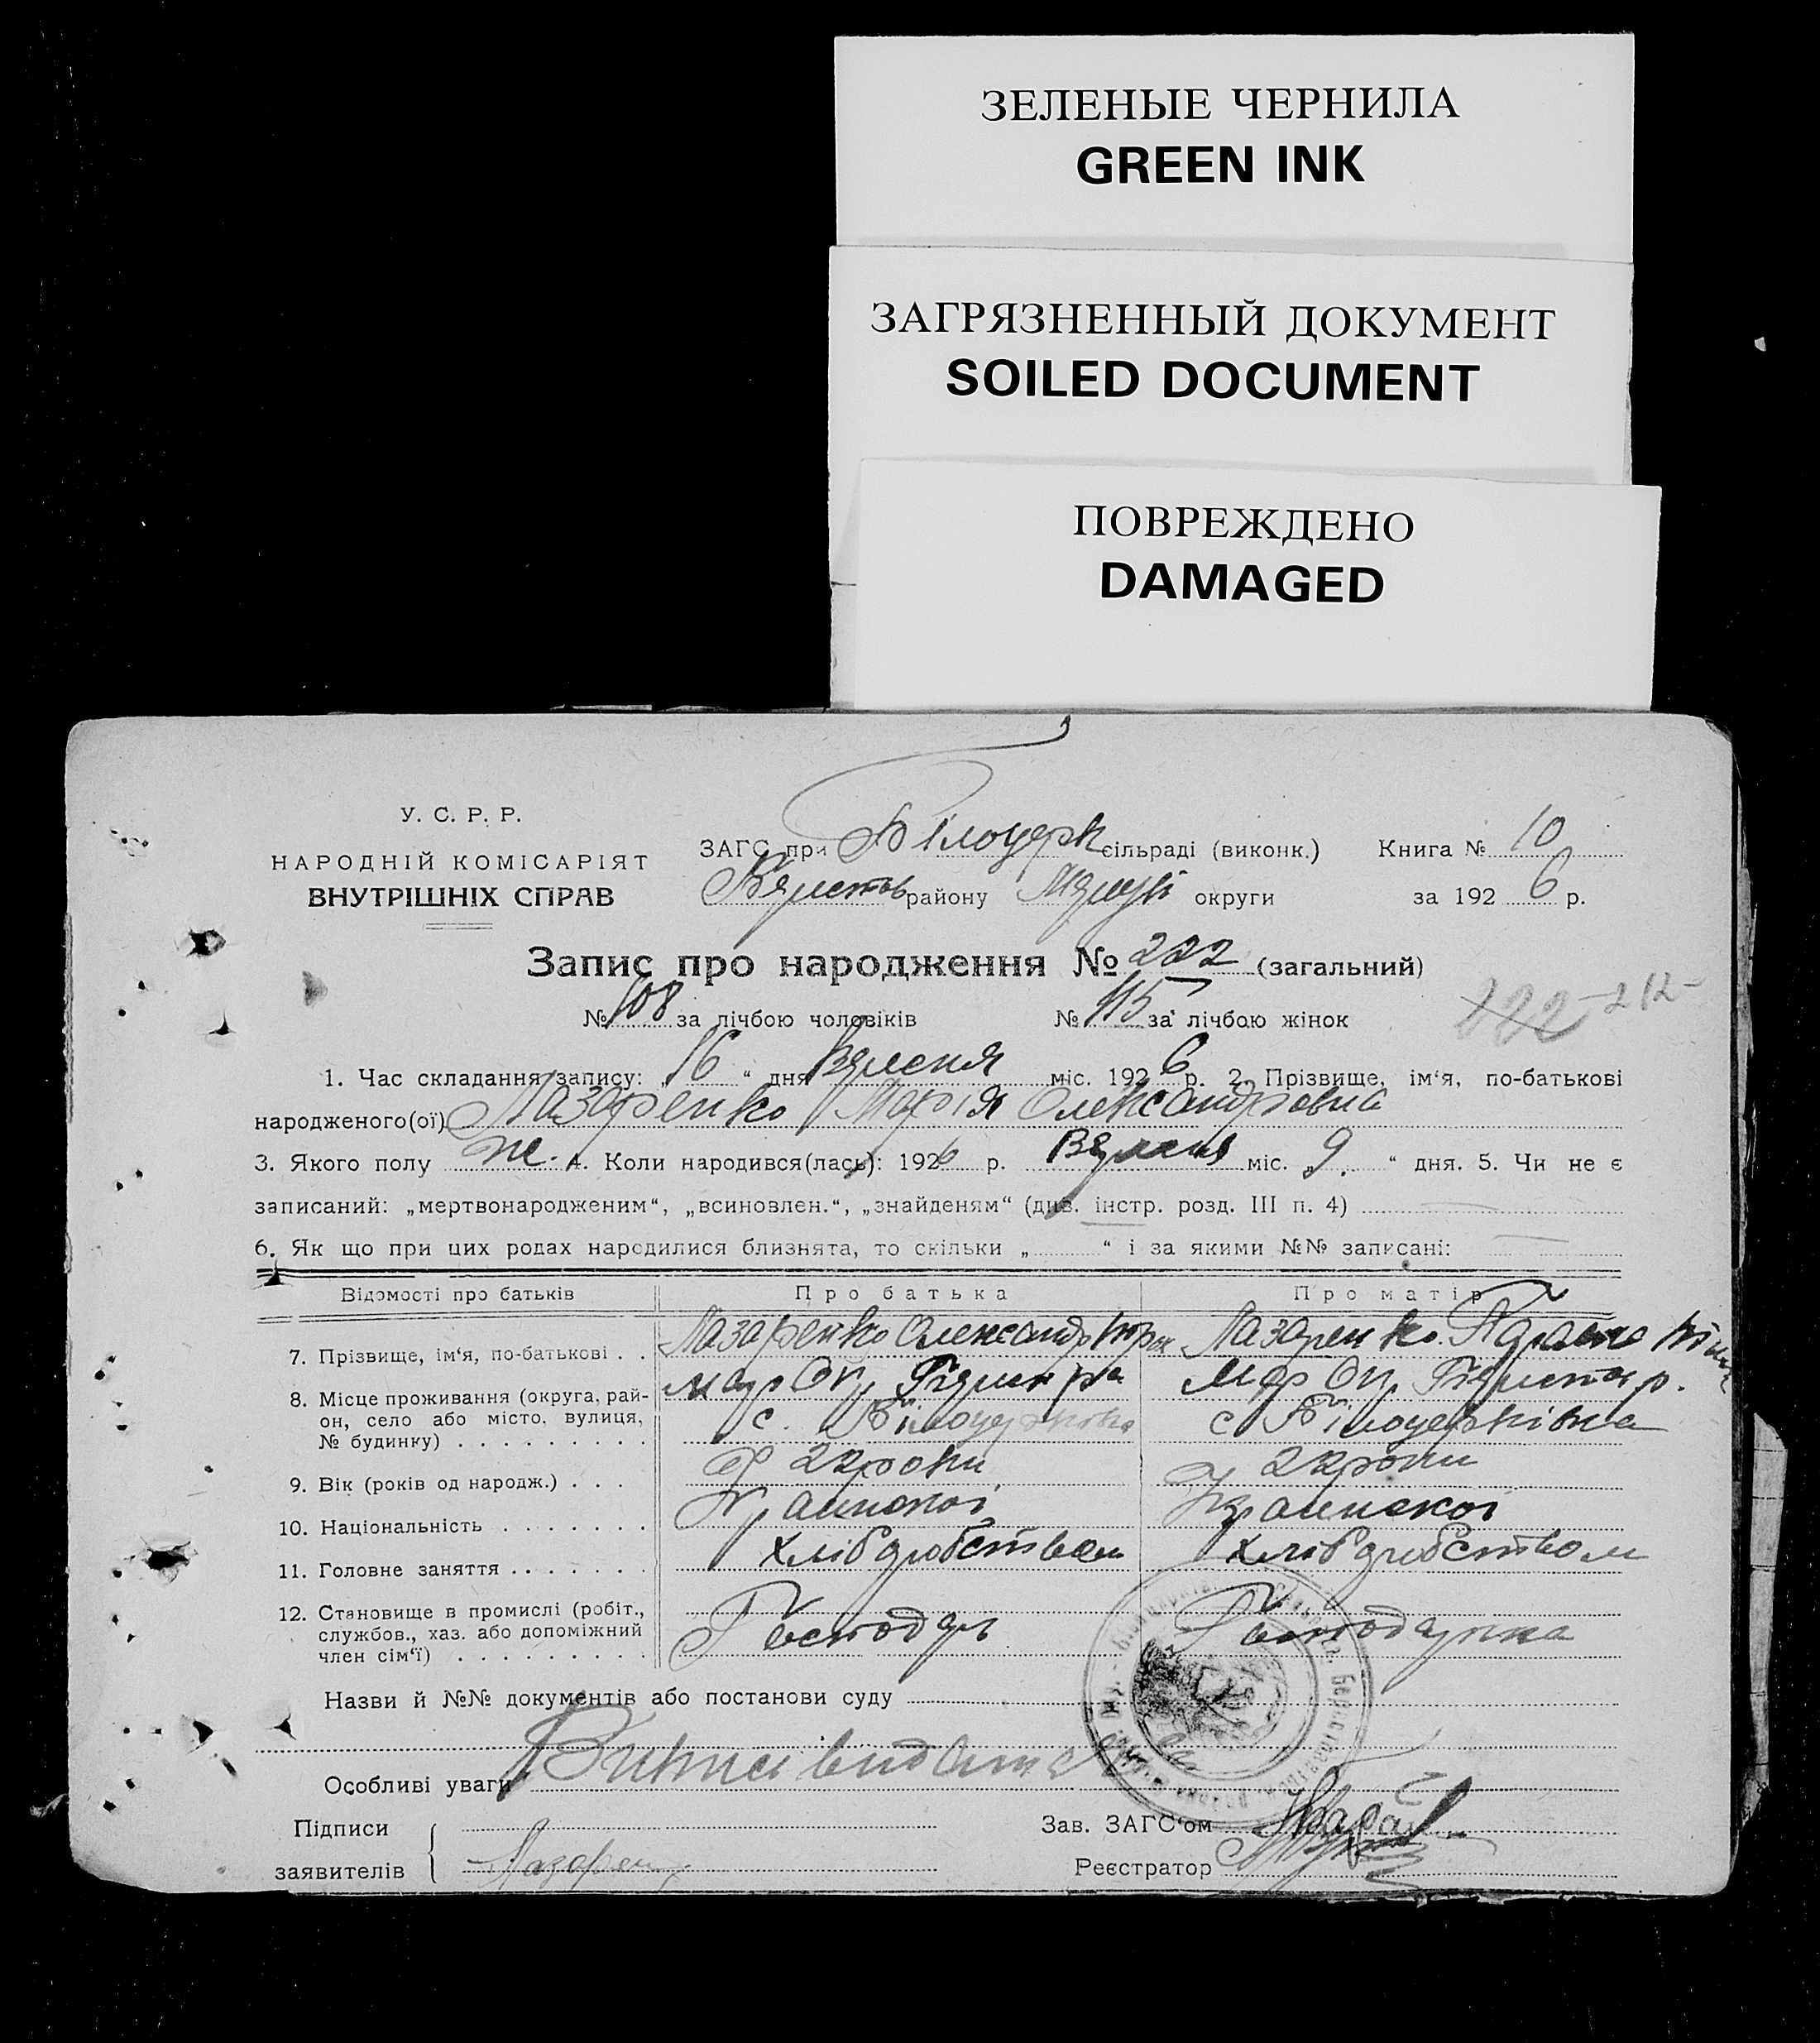 ЗЕЛЕНЫЕ ЧЕРНИЛА
GREEN INK
ЗАГРЯЗНЕННЫЙ ДОКУМЕНТ
SOILED DOCUMENT
ПОВРЕЖДЕНО
DAMAGED
У. С. Р. Р.
НАРОДНІЙ КОМІСАРІЯТ
ВНУТРІШНІХ СПРАВ
ЗАГС при Білоцерк сільраді (виконк.) Книга № 10
району округи за 1926 р.
Запис про народження № 222 (загальний)
№ 108 за лічбою чоловіків № 115 за лічбою жінок
222 - 212 -
1. Час складання запису: „16“ дня Вересня міс. 1926 р. 2. Прізвище, ім‘я, по-батькові
народженого(ої) Лазаренко Марія Олександровна
3. Якого полу ж. 4. Коли народився(лась): 1926 р. Вересня міс. „9.“ дня. 5. Чи не є
записаний: „мертвонародженим“, „всиновлен.“, „знайденям“ (див. інстр. розд. III п. 4)
6. Як що при цих родах народилися близнята, то скільки „ “ і за якими №№ записані:
Відомості про батьків Про батька Про матір
7. Прізвище, ім‘я, по-батькові . . Лазаренко Олександр Лазаренко
8. Місце проживання (округа, рай-
он, село або місто, вулиця, с. Білоцерковка с Білоцерківка
№ будинку) . . . . . . . . .
9. Вік (років од народж.) . . . 22 роки 22 роки
10. Національність . . . . . . .
11. Головне заняття . . . . . . . Хлібробством Хліборобством
12. Становище в промислі (робіт., Господар Господарка
службов., хаз. або допоміжний
член сім‘ї) . . . . . . . . .
Назви й №№ документів або постанови суду
Особливі уваги
Підписи
заявителів Лазарен
Зав. ЗАГС‘ом
Реєстратор